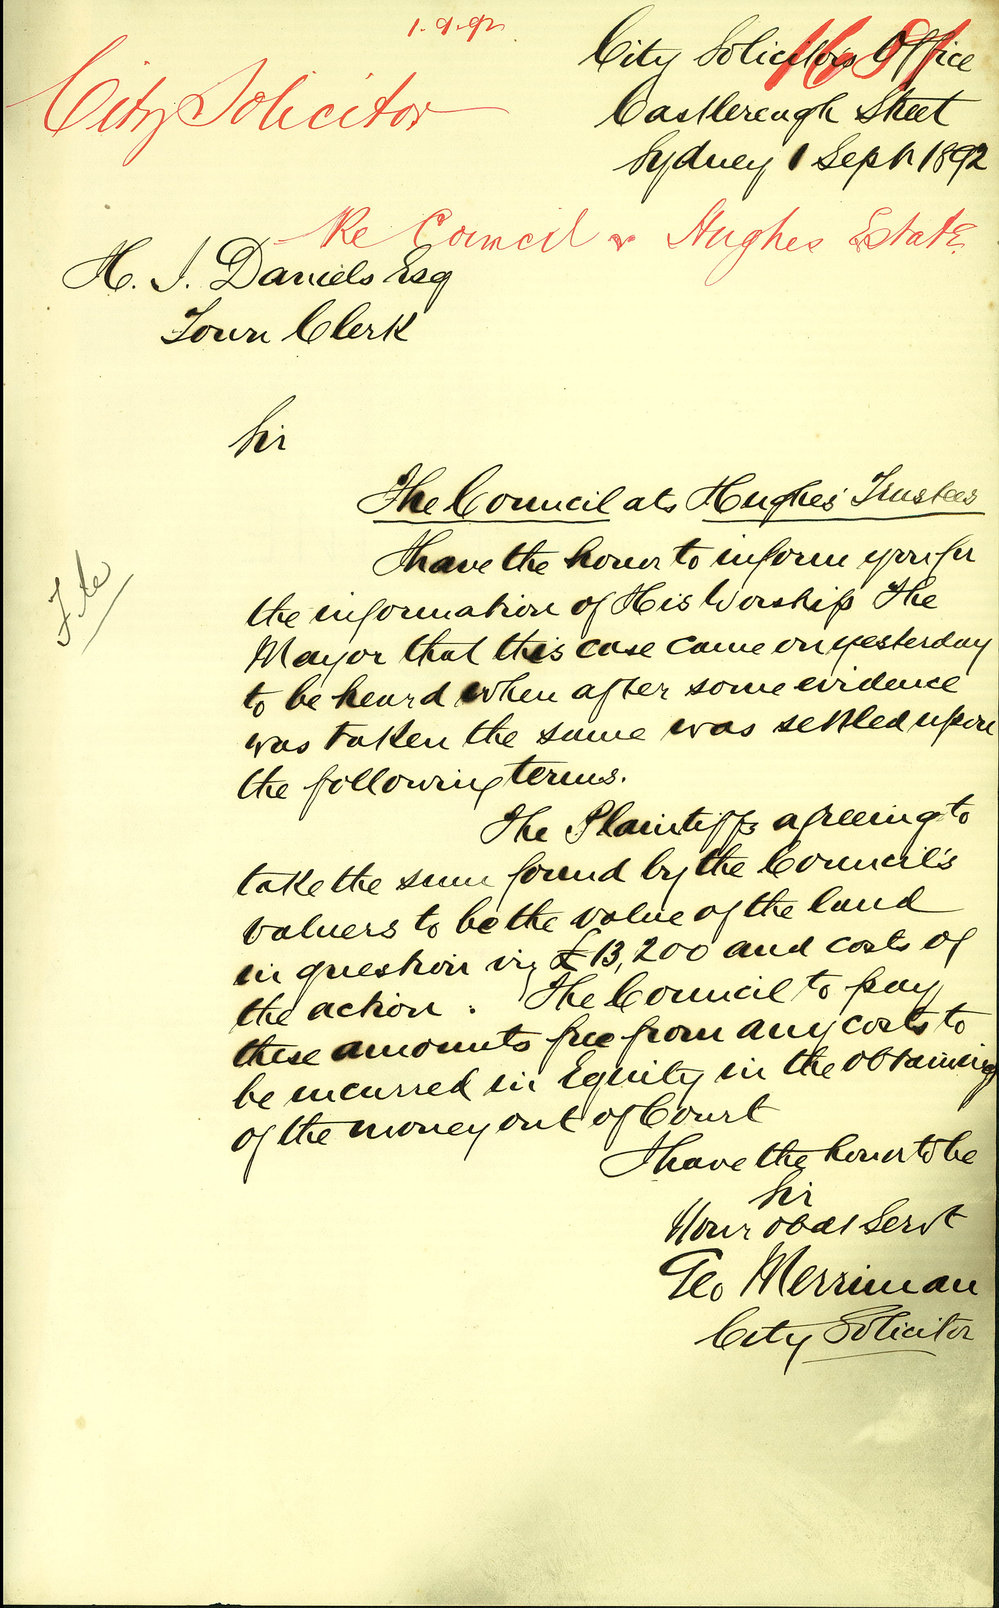 1.9.92
City Solicitor
City Solicitor's Office
Castlereagh Street
Sydney 1 Sept 1892
Re Council & Hughes Estate
H. J. Daniels Esq
Town Clerk
Sir
The Council ats Hughes' Trustees
I have the honor to inform you for
the information of His Worship The
Mayor that this case came on yesterday
to be heard when after some evidence
was taken the same was settled upon
the following terms.
The Plaintiffs agreeing to
take the sum found by the Council's
valuers to be the value of the land
in question viz £13,200 and costs of
the action. The Council to pay
these amounts free from any costs to
be incurred in Equity in the obtaining
of the money out of Court
I have the honor to be
Sir
Your obdt Servt
Geo Merriman
City Solicitor
File